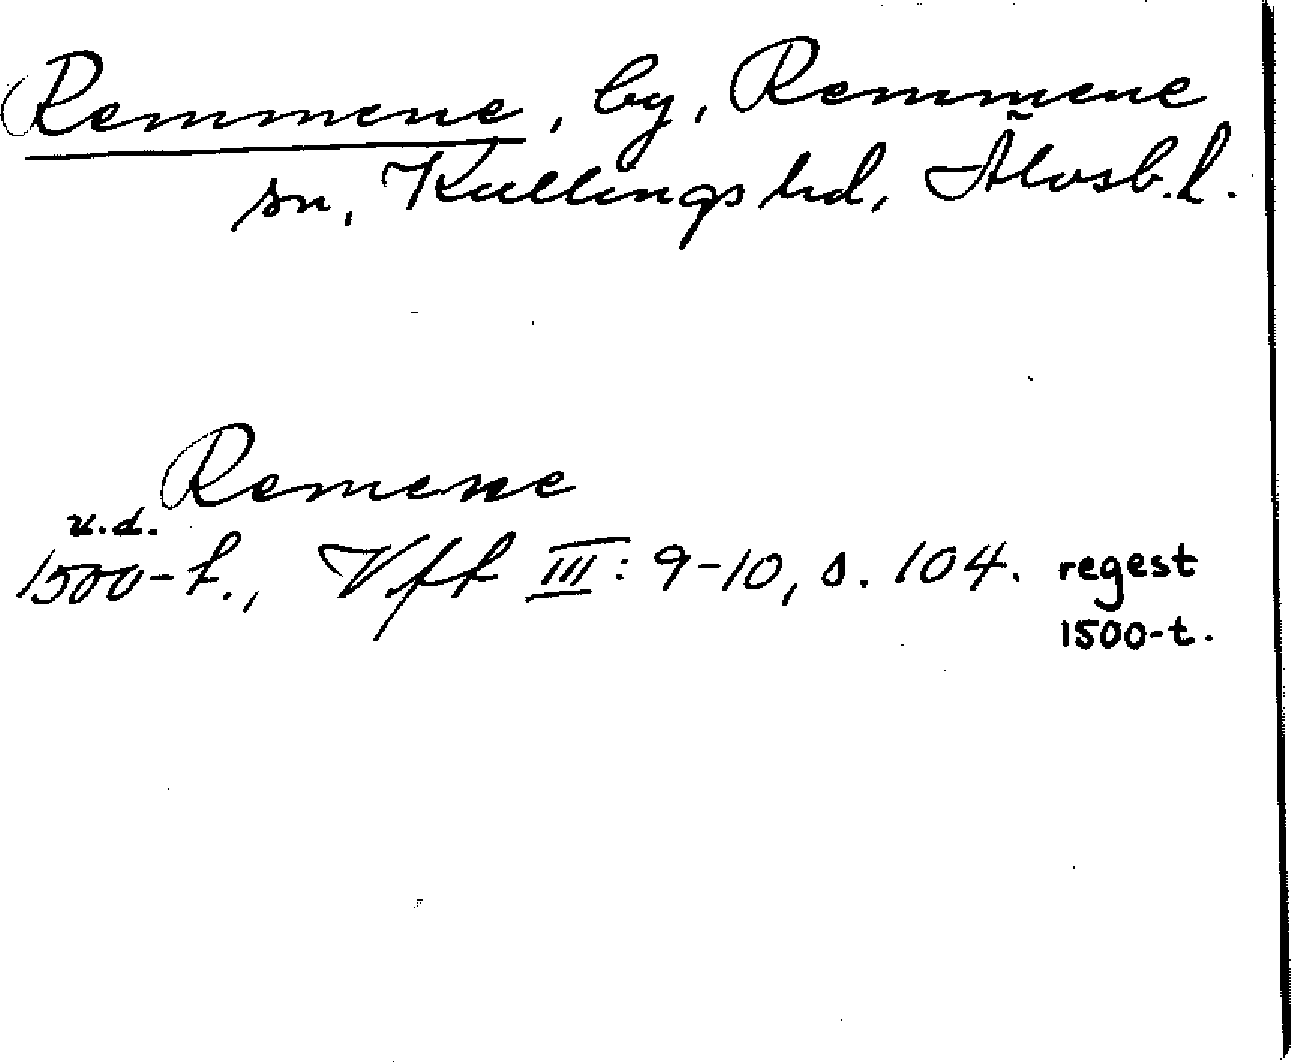 Remmene, by, Remmene
sn, Kullings hd, Älvsb.l.
Remene
u.d.
1500-t., Vff III: 9-10, s. 104. regest
1500-t.